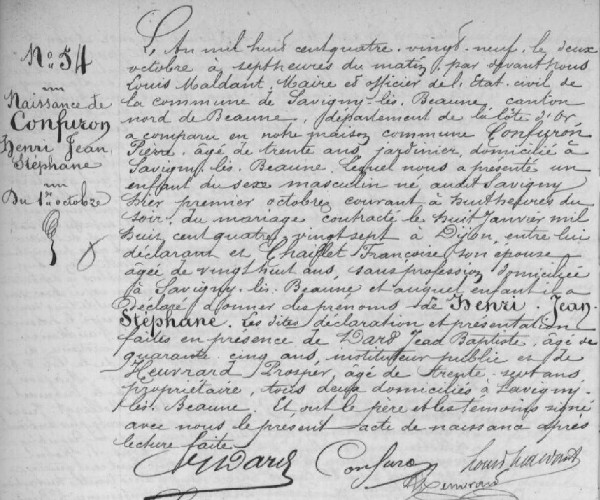 N° 54
Naissance de
Confuron
Henri Jean
Stéphane
Du 1er octobre
L'An mil huit cent quatre-vingt-neuf, le deux
octobre à sept heures du matin, par devant nous
Louis Maldant, Maire et officier de l'Etat-civil de
la commune de Savigny-lès-Beaune, canton
nord de Beaune, département de la Côte d'Or
a comparu en notre maison commune Confuron
Pierre, âgé de trente ans, jardinier, domicilié à
Savigny-lès-Beaune. Lequel nous a présenté un
enfant du sexe masculin né audit Savigny
hier premier octobre courant à huit heures du
soir, du mariage contracté le huit janvier mil
huit cent quatre-vingt sept à Dijon, entre lui
déclarant et Chaiflet Françoise, son épouse
âgée de vingt huit ans, sans profession, domiciliée
à Savigny-lès-Beaune et auquel enfant il a
déclaré donner des prénoms de Henri-Jean-
Stéphane. Les dites déclaration et présentation
faites en présence de Dard Jean Baptiste, âgé de
quarante cinq ans, instituteur public et de
Heuvrard Prosper, âgé de trente-sept ans
propriétaire, tous deux domiciliés à Savigny-
lès-Beaune. Et ont le père et les témoins signé
avec nous le présent acte de naissance après
lecture faite.
Dard Confuron
Heuvrard